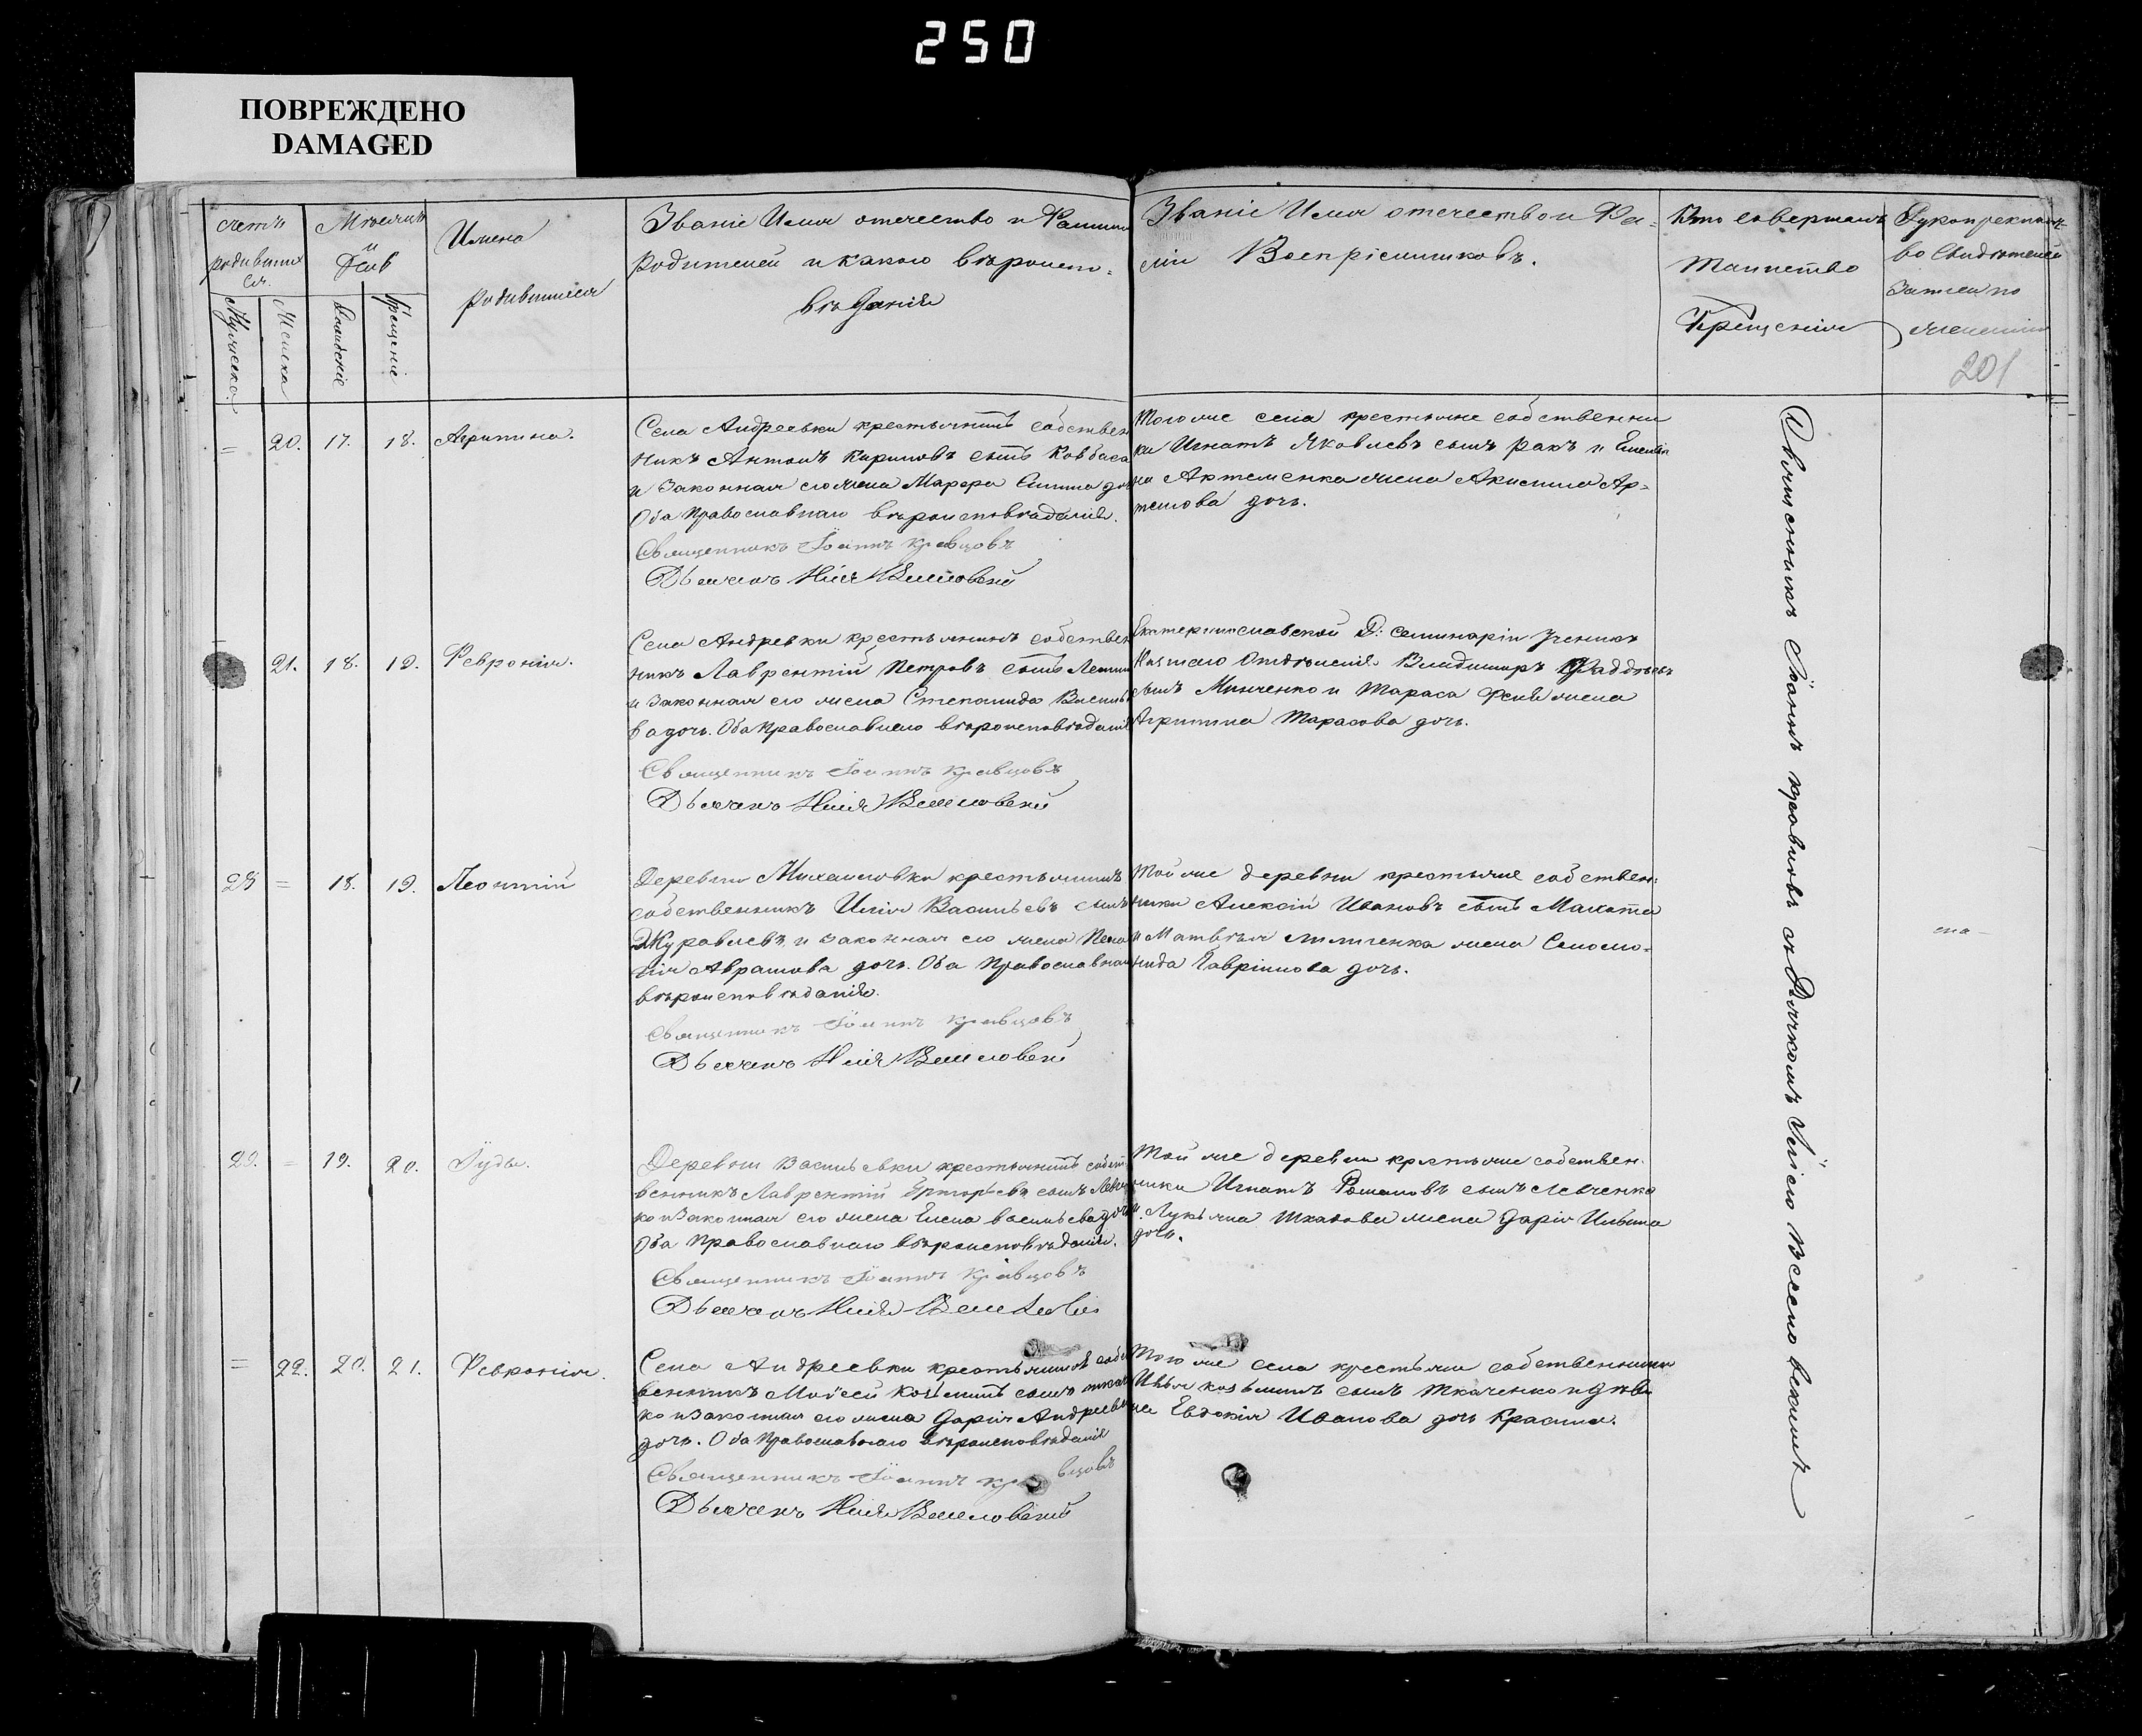 250
ПОВРЕЖДЕНО
DAMAGED
счетъ родившихся.
Мужеска.
Женска
Мѣсяцъ и день
рожденіе
крещеніе
Имена родившихся
Званіе Имя отечество и Фамилія
родителей и какого вѣроиспо-
вѣданія
Званіе Имя отечество и Фа-
милія Воспріемниковъ.
Кто совершалъ
Таинство
Крещенія
Рукоприкладст-
во свидѣтелей
записи по
желанію
201
= 20. 17. 18. Агрипина.
Села Андреевки крестьянинъ собствен
никъ Антонъ Кириловъ сынъ Ковбаса
и законная его жена Марфа
Оба православнаго вѣроисповѣданія.
Священникъ Іоаннъ Кравцовъ
Дьячекъ Илія Веселовскій
Того же села крестьяне собственни
ки Игнатъ Яковлевъ сынъ Ракъ и Емелья
на Артеменка жена Акилина Ар-
темова дочь.
21. 18. 19. Февронія.
Села Андревки крестьянинъ собствен
никъ Лаврентій Петровъ сынъ
и законная его жена Степанида Василье
ва дочь. Оба православнаго вѣроисповѣданія
Священникъ Іоаннъ Кравцовъ
Дьячекъ Илія Веселовскій
Екатеринославской Д: семинаріи ученикъ
Низшаго Отдѣленія Владиміръ Фаддѣевъ
сынъ Минченко и Тараса жена
Агрипина Тарасова дочь.
28 = 18. 19. Леонтій
Деревни Михаиловки крестьянинъ
собственникъ Илія Васильевъ сынъ
Журавлевъ и законная его жена Пела
гія Аврамова дочь. Оба православнаго
вѣроисповѣданія.
Священникъ Іоаннъ Кравцовъ
Дьячекъ Илія Веселовскій
Той же деревни крестьяне собствен-
ники Алексій Ивановъ сынъ Махота
и Матвѣя жена Соломо-
нида Гавріилова дочь.
29. = 19. 20. Іуда.
Деревни Васильевки крестьянинъ собст
венникъ Лаврентій Григорьевъ сынъ Левчен
ко и законная его жена Елена Васильева дочь
Оба православнаго вѣроисповѣданія.
Священникъ Іоаннъ Кравцовъ
Дьячекъ Илія
Той же деревни крестьяне собствен-
ники Игнатъ Романовъ сынъ Левченко
и Лукьяна жена Дарія Ильина
дочь.
= 22. 20. 21. Февронія.
Села Андреевки крестьянинъ собст
венникъ Моисей Козьминъ сынъ Ткачен
ко и законная его жена Дарія Андреева
дочь. Оба православнаго вѣроисповѣданія
Священникъ Іоаннъ Кравцовъ
Дьячекъ Илія Веселовскій
Того же села крестьяне собственники
Илья Козьминъ сынъ Ткаченко и дѣви
ца Евдокія Иванова дочь
Священникъ Іоаннъ Кравцовъ съ Дьячкомъ Иліею Веселовскимъ